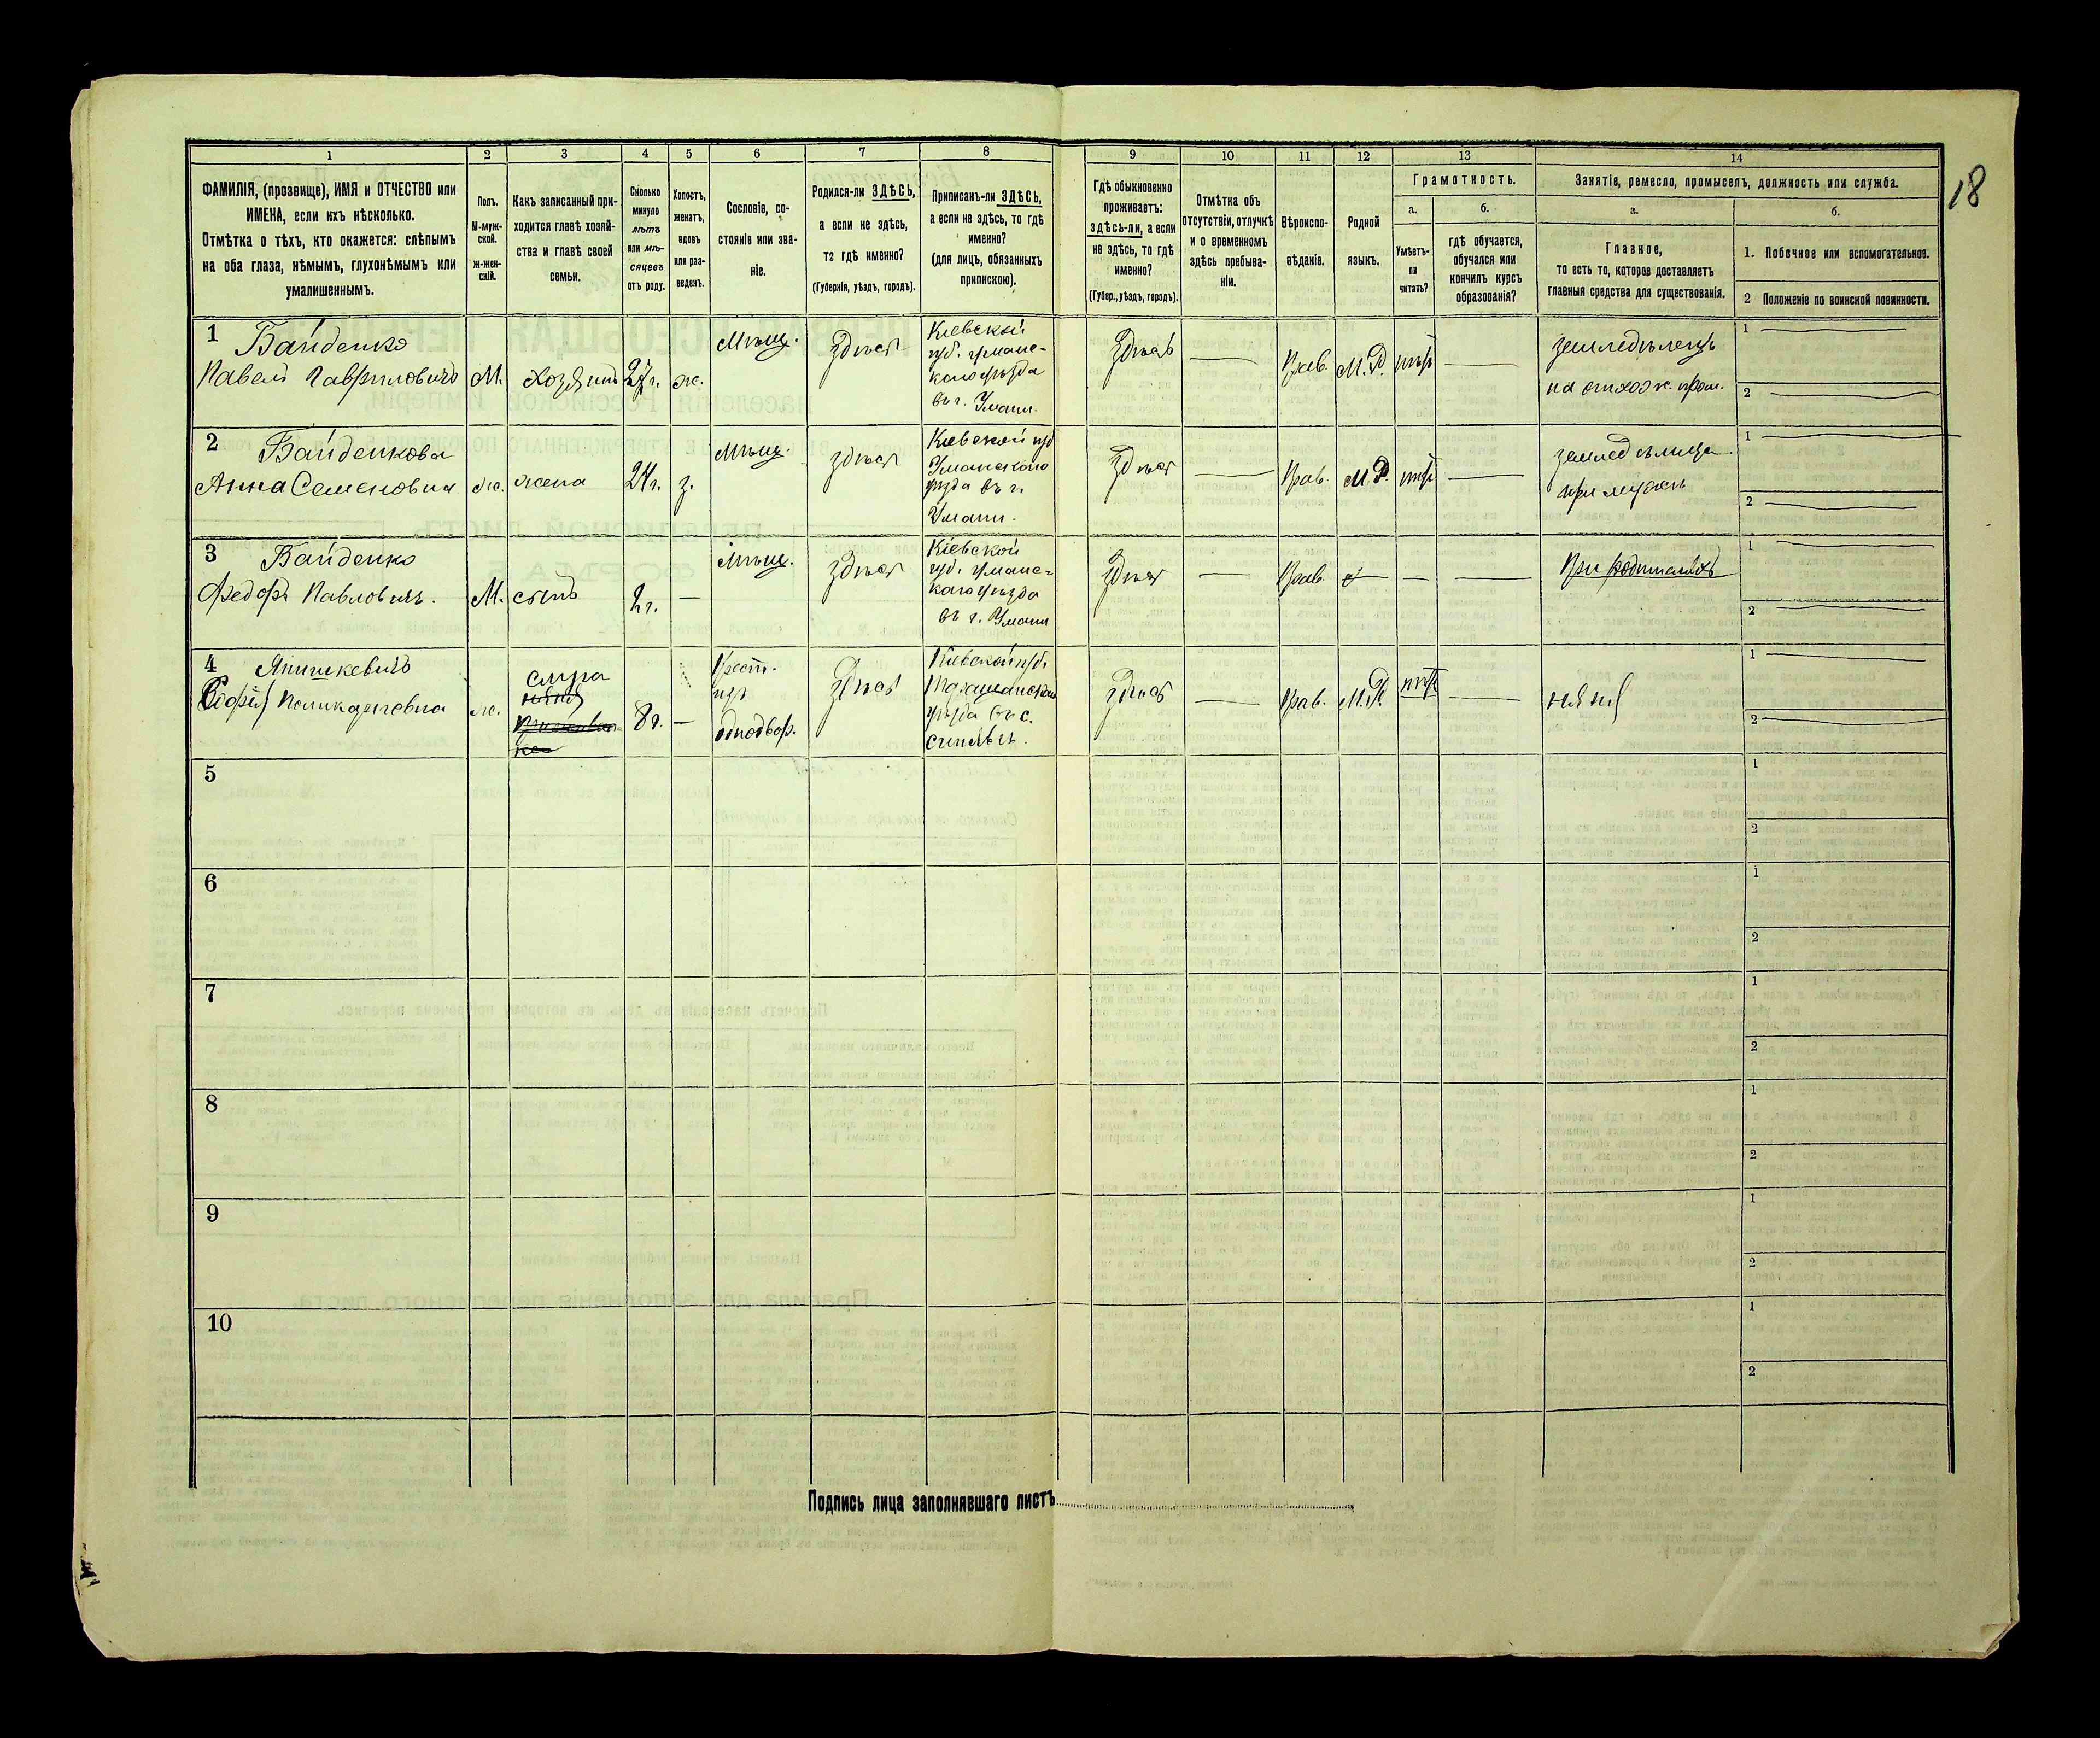 18
1 2 3 4 5 6 7 8 9 10 11 12 13 14
ФАМИЛІЯ, (прозвище), ИМЯ и ОТЧЕСТВО или
ИМЕНА, если ихъ нѣсколько.
Отмѣтка о тѣхъ, кто окажется: слѣпымъ
на оба глаза, нѣмымъ, глухонѣмымъ или
умалишеннымъ.
Полъ.
М-муж-
ской.
ж-жен-
скій.
Какъ записанный при-
ходится главѣ хозяй-
ства и главѣ своей
семьи.
Сколько
минуло
лѣтъ
или мѣ-
сяцевъ
отъ роду.
Холостъ,
женатъ,
вдовъ
или раз-
веденъ.
Сословіе, со-
стояніе или зва-
ніе.
Родился-ли ЗДѢСЬ,
а если не здѣсь,
то гдѣ именно?
(Губернія, уѣздъ, городъ).
Приписанъ-ли ЗДѢСЬ,
а если не здѣсь, то гдѣ
именно?
(для лицъ, обязанныхъ
припискою).
Гдѣ обыкновенно
проживаетъ:
здѣсь-ли, а если
не здѣсь, то гдѣ
именно?
(Губер., уѣздъ, городъ).
Отмѣтка объ
отсутствіи, отлучкѣ
и о временномъ
здѣсь пребыва-
ніи.
Вѣроиспо-
вѣданіе.
Родной
языкъ.
Грамотность.
а.
Умѣетъ-
ли
читать?
б.
гдѣ обучается,
обучался или
кончилъ курсъ
образованія?
Занятіе, ремесло, промыселъ, должность или служба.
а.
Главное,
то есть то, которое доставляетъ
главныя средства для существованія.
б.
1. Побочное или вспомогательное.
2 Положеніе по воинской повинности.
1 Байденко
Павелъ Гавриловичъ
М.
Хозяинъ
27 г.
ж.
Мѣщ.
здѣсь
Кіевской
губ. Уманс-
каго уѣзда
въ г. Умани.
Здѣсь
Прав.
М.Р.
нѣтъ
земледѣлецъ
на отхож. пром.
1
2
2 Байденкова
Анна Семеновна
ж.
жена
24 г.
з.
Мѣщ.
здѣсь
Кіевской губ
Уманскаго
уѣзда въ г.
Умани.
Здѣсь
Прав.
М.Р.
нѣтъ
земледѣлица
при мужѣ
1
2
3 Байденко
Федоръ Павловичъ.
М.
сынъ
2 г.
Мѣщ.
здѣсь
Кіевской
губ. Уманс-
каго уѣзда
въ г. Умани
Здѣсь
Прав.
При родителяхъ
1
2
4
Софія Поликарповна
ж.
няня
8 г.
Крест.
изъ
однодвор.
Здѣсь
Кіевской губ.
уѣзда въ с.
здѣсь
Прав.
М.Р.
нѣтъ
няня
1
2
5
1
2
6
1
2
7
1
2
8
1
2
9
1
2
10
1
2
Подпись лица заполнявшаго листъ